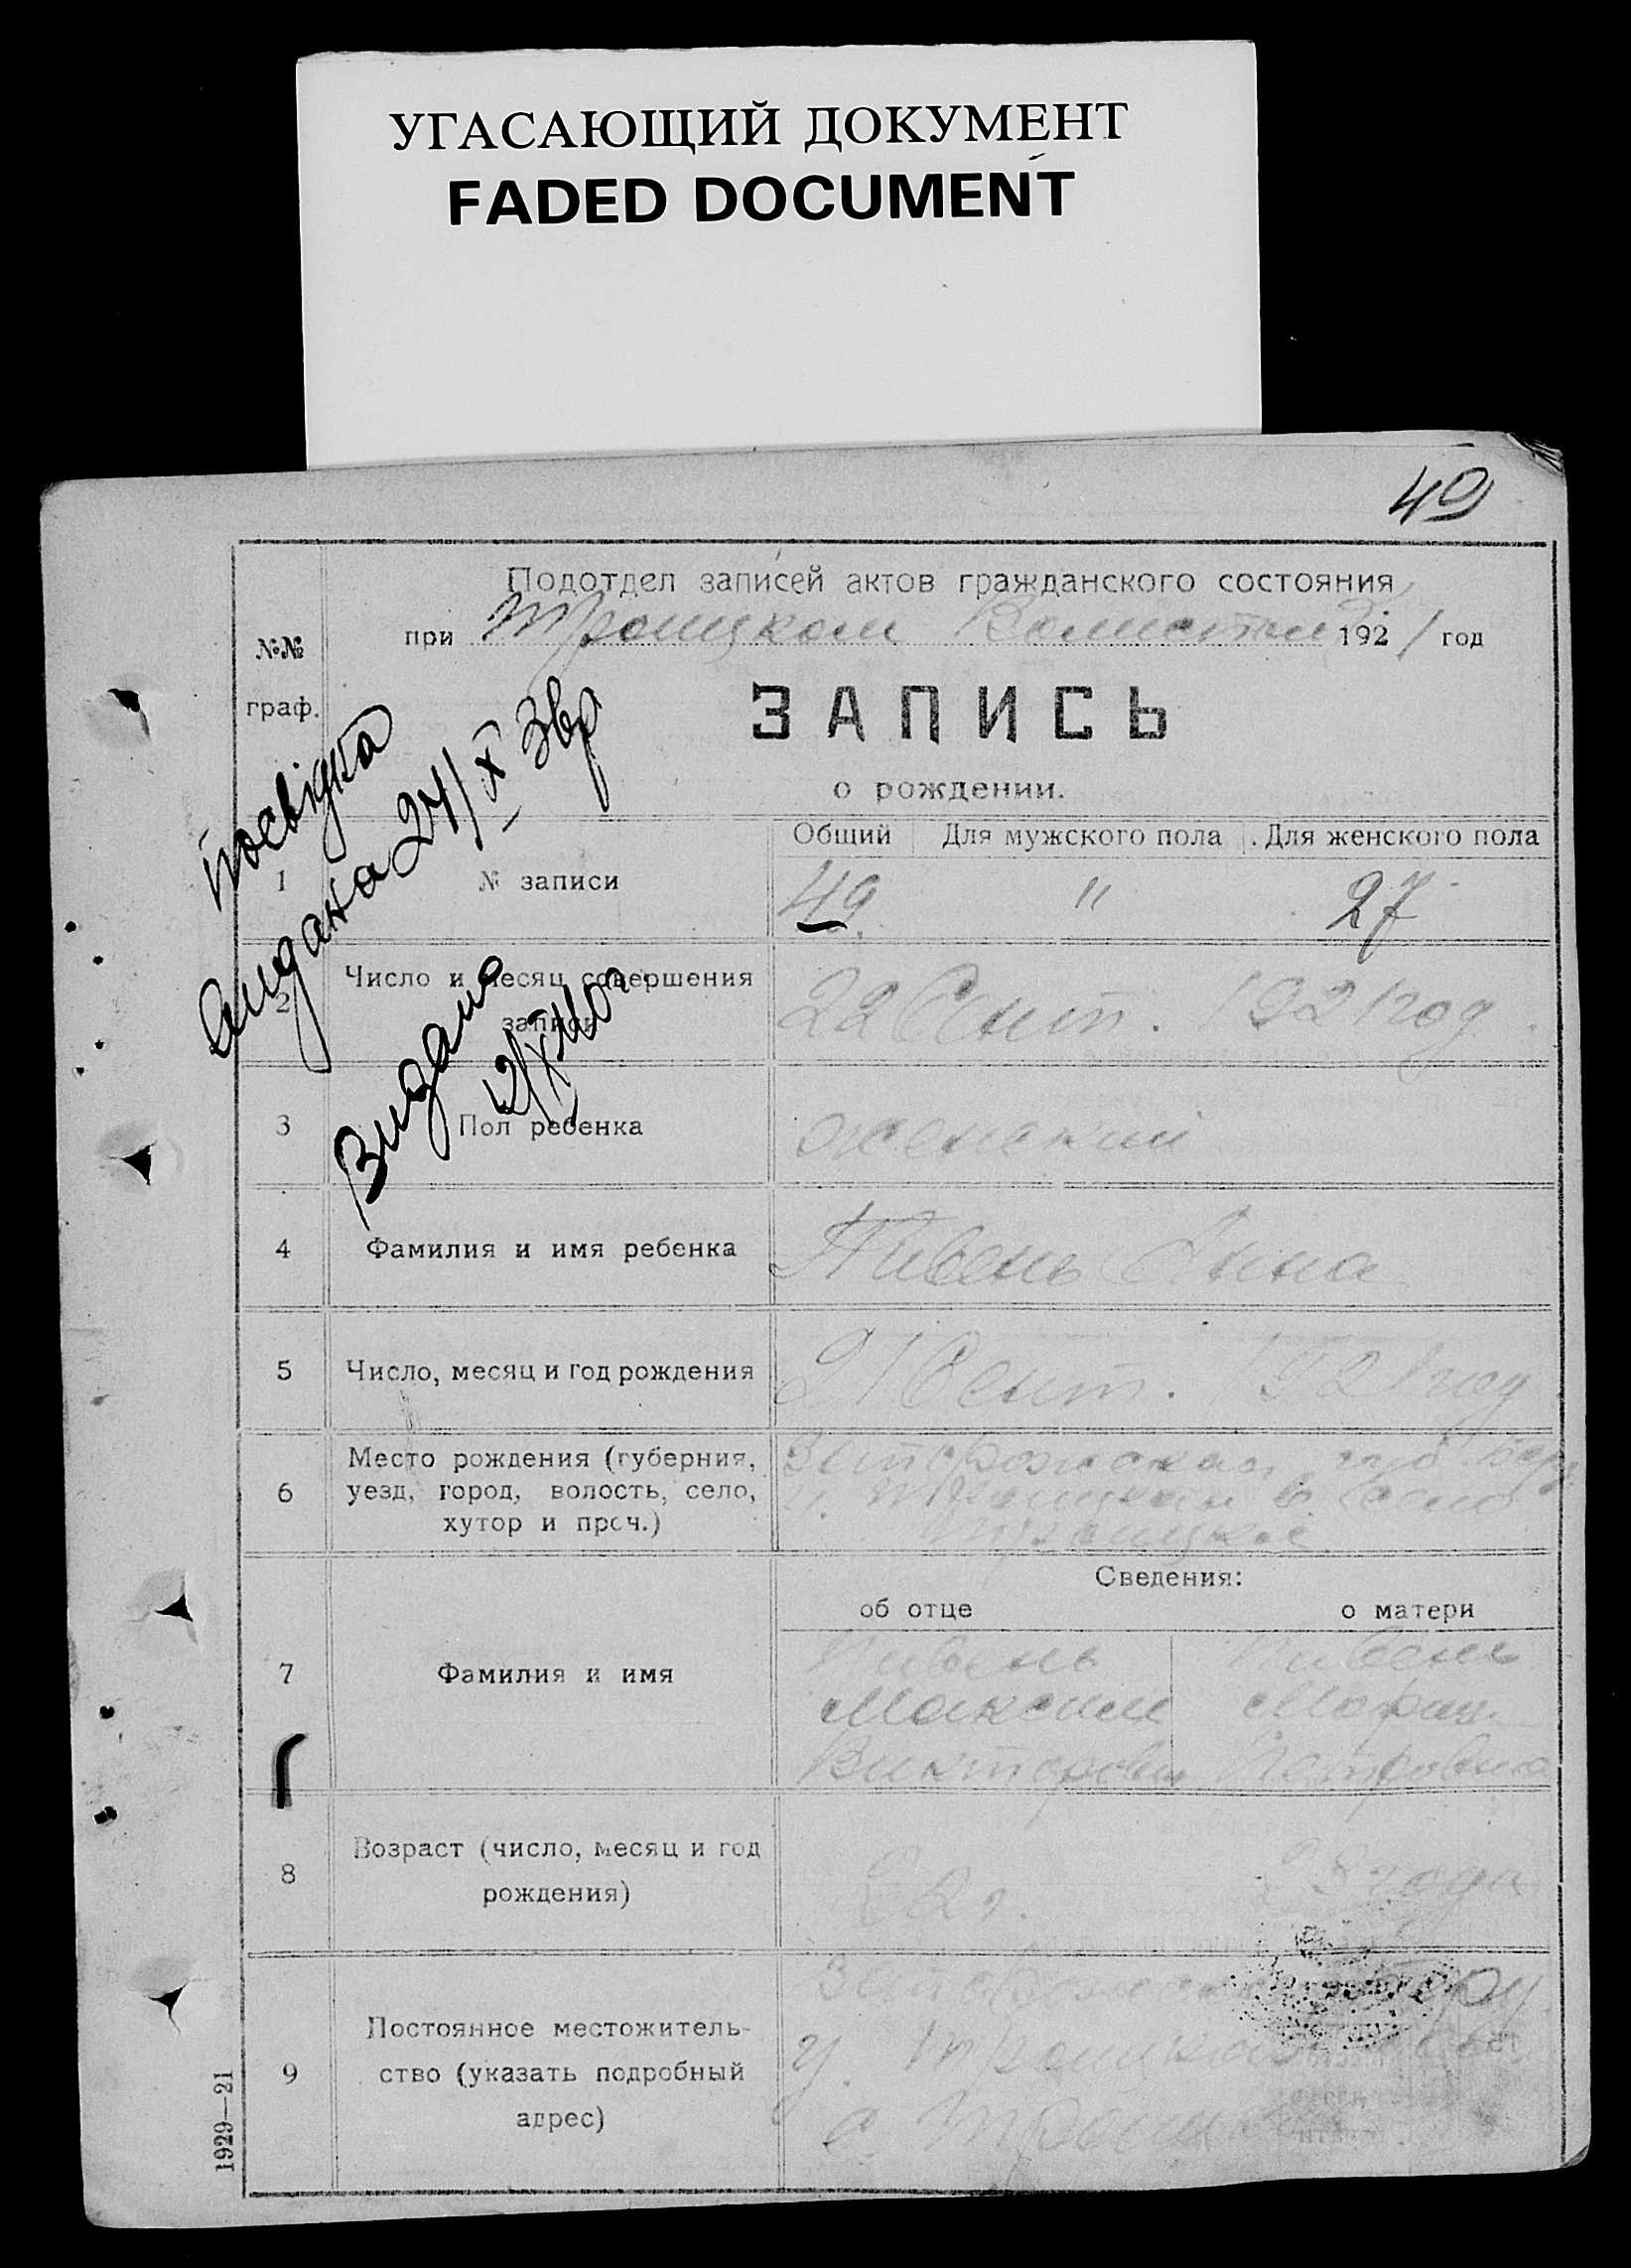 УГАСАЮЩИЙ ДОКУМЕНТ
FADED DOCUMENT
49
Подотдел записей актов гражданского состояния
при Троицком 1921 год
№№
граф.
ЗАПИСЬ
о рождении.
посвідка
видана 24/X 3
Видано
12/X 40 г
Общий Для мужского пола Для женского пола
1 № записи 49 " 27
2 Число и месяц совершения
записи
22 Сент. 1921 год
3 Пол ребенка женский
4 Фамилия и имя ребенка Пивень Анна
5 Число, месяц и год рождения 21 Сент. 1921 год
6 Место рождения (губерния,
уезд, город, волость, село,
хутор и проч.)
Запорожская губ. Бер.
у. Троицкая в село
Троицкое
Сведения:
об отце о матери
7 Фамилия и имя
Пивень Пивень
Максим Мария
Викторович Петровна
8 Возраст (число, месяц и год
рождения)
года
9 Постоянное местожитель-
ство (указать подробный
адрес)
Запорожская
у. Троицкая
с.
1929—21